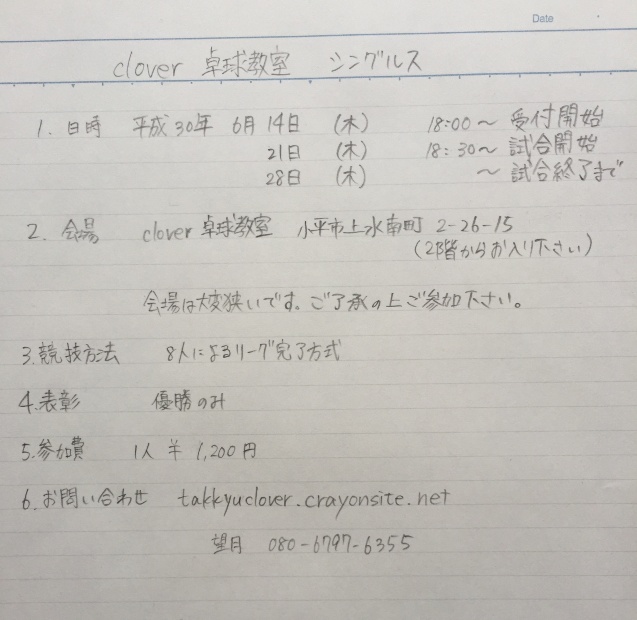 Date
clover 卓球教室 シングルス
1. 日時 平成30年 6月14日 (木) 18:00~ 受付開始
21日 (木) 18:30~ 試合開始
28日 (木) ~ 試合終了まで
2. 会場 clover 卓球教室 小平市上水南町 2-26-15
(2階からお入り下さい)
会場は大変狭いです。ご了承の上ご参加下さい。
3.競技方法 8人によるリーグ完了方式
4.表彰 優勝のみ
5.参加費 1人 ¥ 1,200円
6.お問い合わせ takkyuclover.crayonsite.net
望月 080-6797-6355